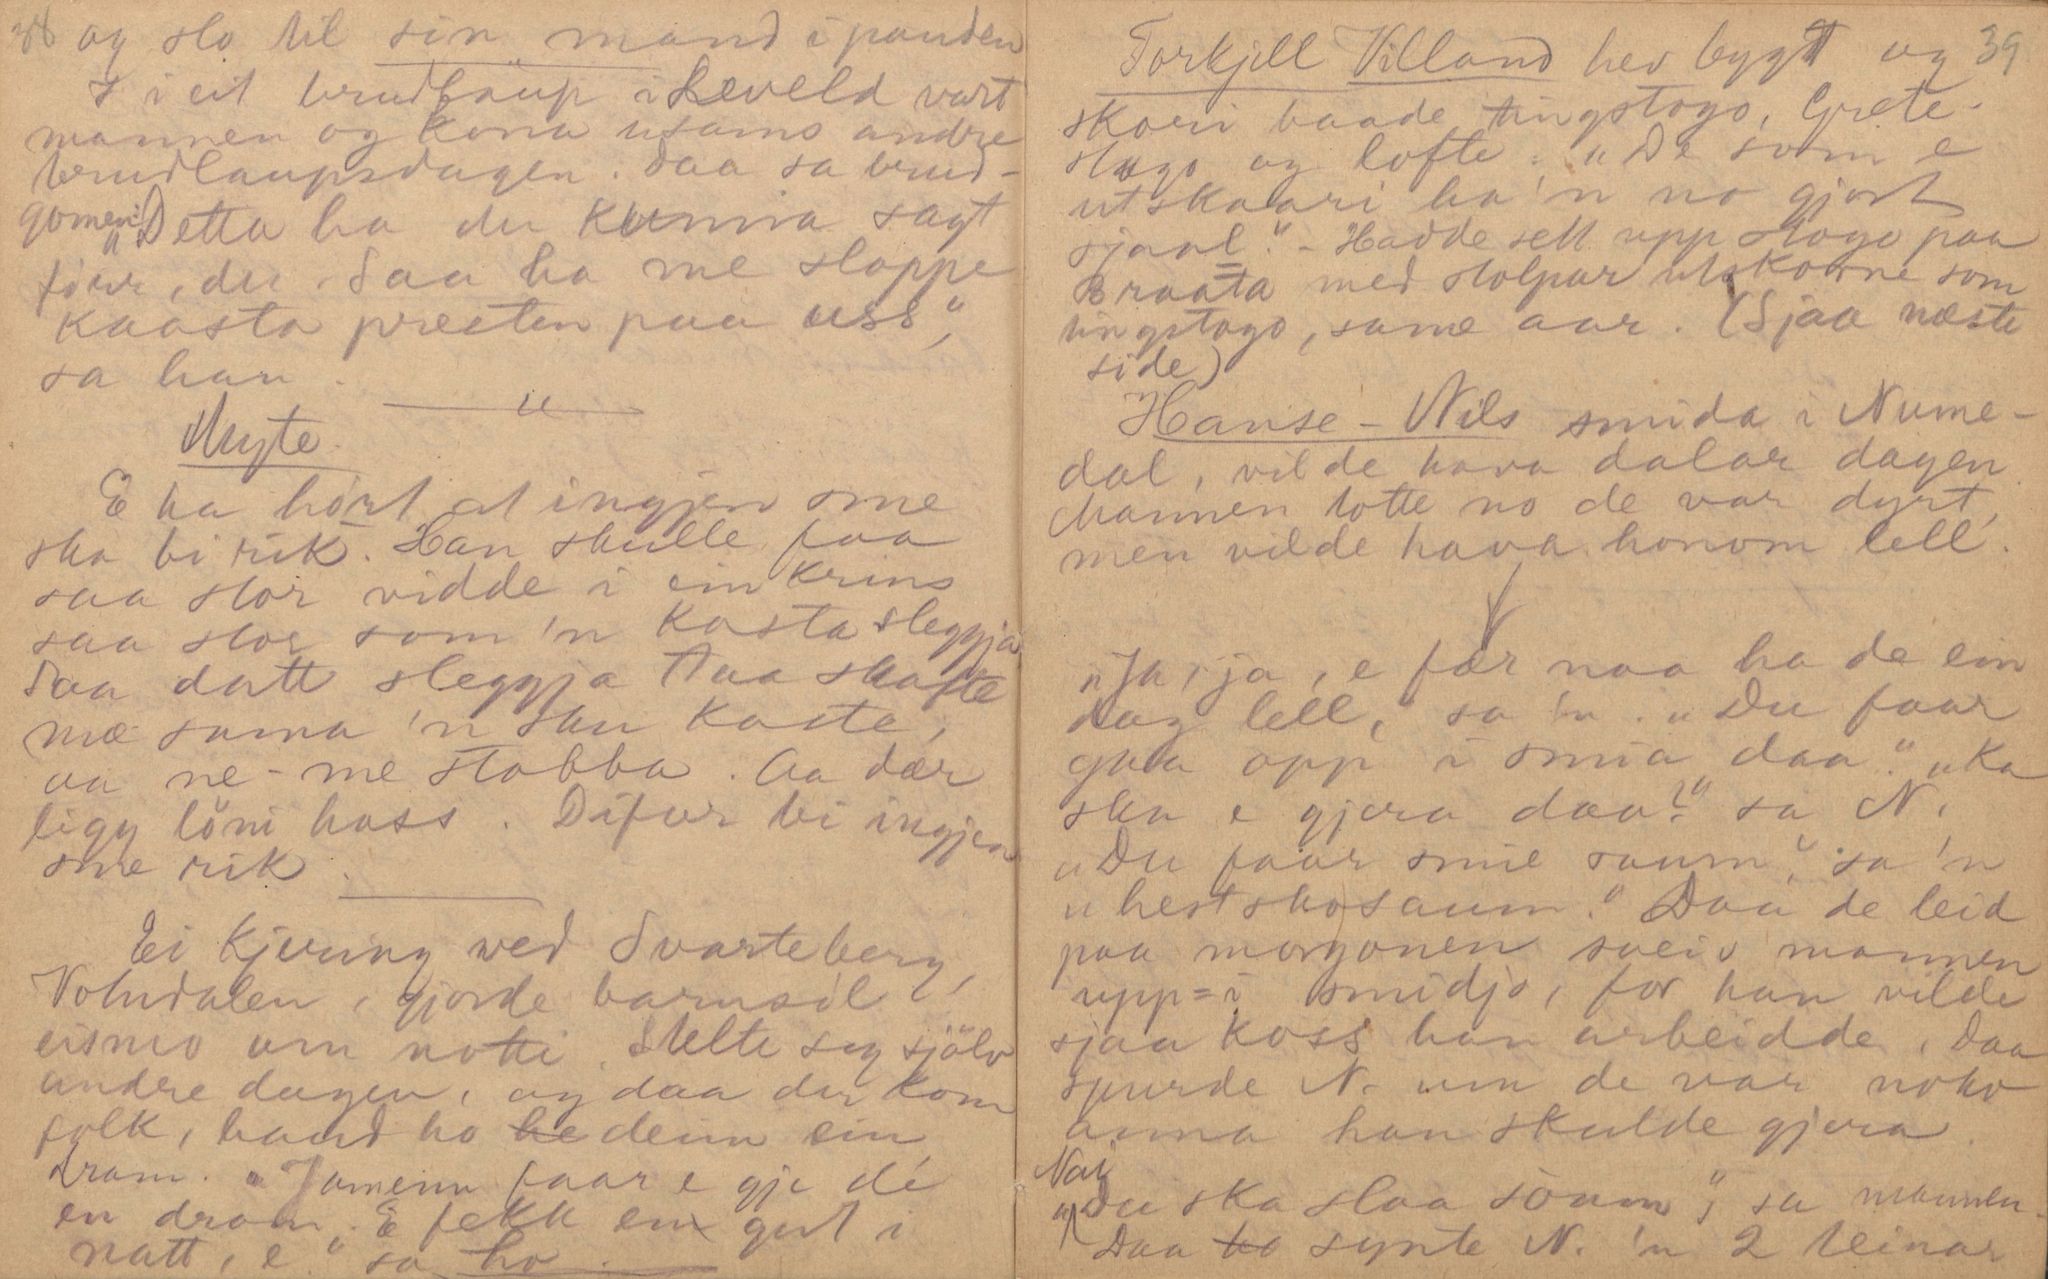 38 og slo til sin mand i panden
I eit brudlaup i Leveld vart
mannen og kona usams andre
brudlaupsdagen. Daa sa brud-
gomen: "Detta ha du kunna sagt
fiur, du. Saa ha me sloppe
kaasta presten paa uss",
sa han.
"
Myte.
E ha hört at ingjen sme
ska bi rik. Han skulle faa
saa stor vidde i ein krins
saa stor som 'n kasta sleggja
Daa datt sleggja taa skafte
mæ sama 'n sku kaste,
aa ne-me stabba. Aa dær
ligg löni hass. Difur bi ingjen
sme rik.
Ei kjering ved Svarteberg,
Votndalen, gjorde barnsöl
eismo um notti. Stelte seg sjölv
andre dagen, og daa der kom
folk, baud ho he deim ein
dram. "Jamenn faar e gje dé
en dram. E fekk ein gut i
natt, e" sa ho.
39
Torkjell Villand hev bygt og
skori baade tingstogo, Grete-
stogo og lofte. "De som e
utskaari ha 'n no gjort
sjaal". - Hadde sett upp stogo paa
Braata med stolpar utskorne som
tingstogo, same aar. (Sjaa næste
side)
Hanse-Nils smida i Nume-
dal, vilde hava dalar dagen
Mannen totte no de var dyrt,
men vilde hava honom lell.
"Ja, ja, e fær naa ha de ein
dag lell," sa 'n. "Du faar
gaa opp i smia daa". "Ka
ska e gjera daa?" sa N.
"Du faar smie saum", sa 'n
"hestskosaum." Daa de leid
paa morgonen sveiv mannen
upp=i smidjo, for han vilde
sjaa koss han arbeidde. Daa
spurde N. um de var noko
anna han skulde gjera.
Nai
"Du ska slaa söum", sa mannen.
Daa ho synte N. 'n 2 teinar